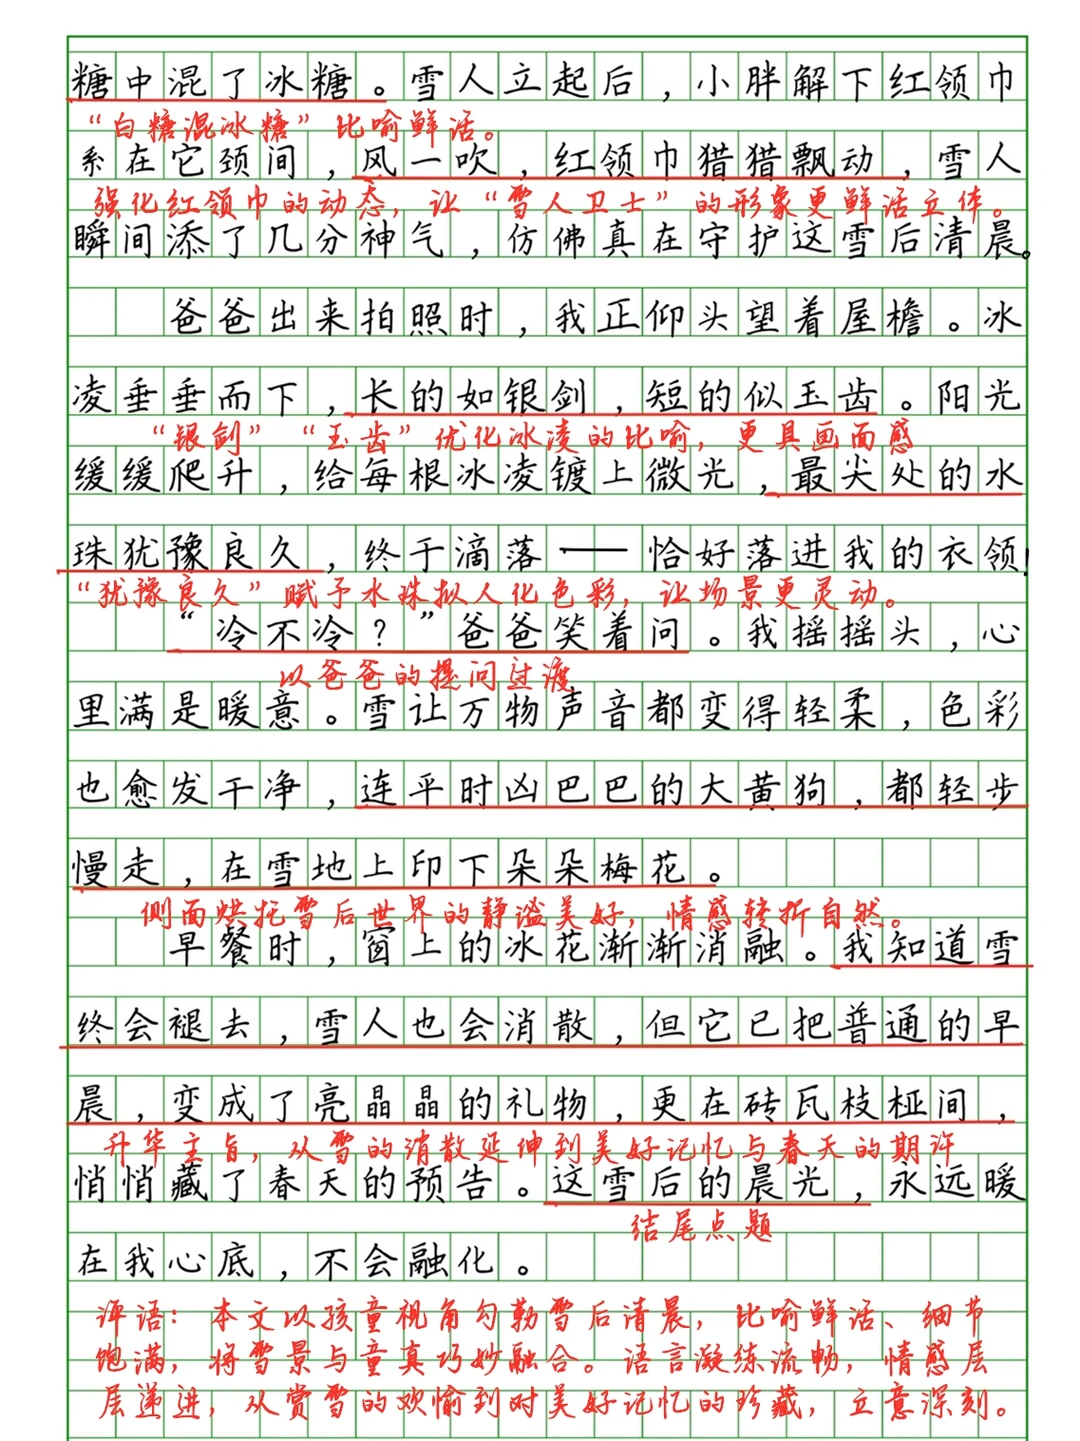 糖中混了冰糖。雪人立起后，小胖解下红领巾
“白糖混冰糖”比喻鲜活。
系在它颈间，风一吹，红领巾猎猎飘动，雪人
强化红领巾的动态，让“雪人卫士”的形象更鲜活立体。
瞬间添了几分神气，仿佛真在守护这雪后清晨。
爸爸出来拍照时，我正仰头望着屋檐。冰
凌垂垂而下，长的如银剑，短的似玉齿。阳光
“银剑”“玉齿”优化冰凌的比喻，更具画面感
缓缓爬升，给每根冰凌镀上微光，最尖处的水
珠犹豫良久，终于滴落——恰好落进我的衣领！
“犹豫良久”赋予水珠拟人化色彩，让场景更灵动。
“冷不冷？”爸爸笑着问。我摇摇头，心
以爸爸的提问过渡
里满是暖意。雪让万物声音都变得轻柔，色彩
也愈发干净，连平时凶巴巴的大黄狗，都轻步
慢走，在雪地上印下朵朵梅花。
侧面烘托雪后世界的静谧美好，情感转折自然。
早餐时，窗上的冰花渐渐消融。我知道雪
终会褪去，雪人也会消散，但它已把普通的早
晨，变成了亮晶晶的礼物，更在砖瓦枝桠间，
升华主旨，从雪的消散延伸到美好记忆与春天的期许
悄悄藏了春天的预告。这雪后的晨光，永远暖
结尾点题
在我心底，不会融化。
评语：本文以孩童视角勾勒雪后清晨，比喻鲜活、细节
饱满，将雪景与童真巧妙融合。语言凝练流畅，情感层
层递进，从赏雪的欢愉到对美好记忆的珍藏，立意深刻。